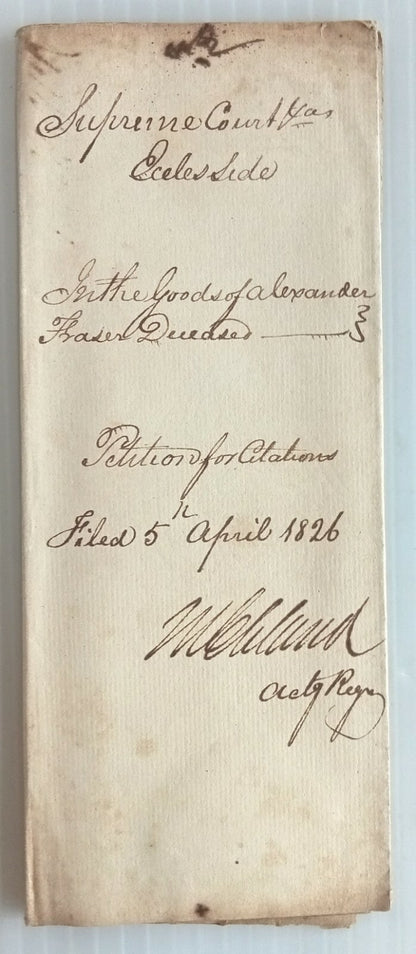 Supreme Court
Eccles Side
In the Goods of Alexander
Fraser Deceased
Petition for Citations
Filed 5th April 1826
Actg Regr